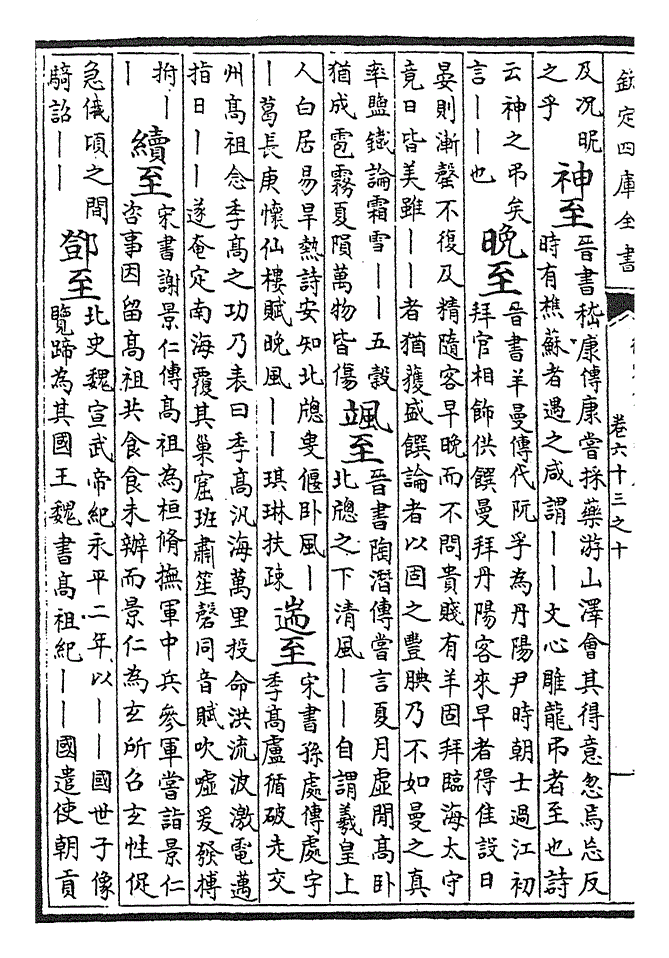 欽定四庫全書
卷六十三之十
及况昵
之乎
神至
晉書嵇康傳康嘗採藥游山澤會其得意忽焉忘反
時有樵蘇者遇之咸謂丨丨文心雕龍弔者至也詩
云神之弔矣
言丨丨也
晚至
晉書羊曼傳代阮孚為丹陽尹時朝士過江初
拜官相飾供饌曼拜丹陽客來早者得佳設日
晏則漸罄不復及精隨客早晚而不問貴賤有羊固拜臨海太守
竟日皆美雖丨丨者猶獲盛饌論者以固之豐腆乃不如曼之真
率鹽鐵論霜雪丨丨五穀
猶成雹霧夏隕萬物皆傷
颯至
晉書陶潛傳嘗言夏月虛閒高卧
北牕之下清風丨丨自謂羲皇上
人白居易旱熱詩安知北牕叟偃卧風丨
丨葛長庚懷仙樓賦晚風丨丨琪琳扶疎
遄至
宋書孫處傳處字
季高盧循破走交
州高祖念季高之功乃表曰季高汎海萬里投命洪流波激電邁
指日丨丨遂奄定南海覆其巢窟班肅笙磬同音賦吹噓爰發搏
拊丨
丨
續至
宋書謝景仁傳高祖為桓脩撫軍中兵參軍嘗詣景仁
咨事因留高祖共食食未辦而景仁為玄所召玄性促
急俄頃之間
騎詔丨丨
鄧至
北史魏宣武帝紀永平二年以丨丨國世子像
覽蹄為其國王魏書高祖紀丨丨國遣使朝貢